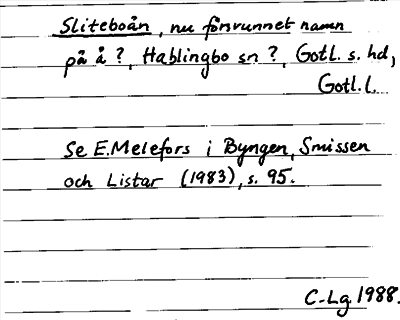 Sliteboån, nu försvunnet namn
på å ?, Hablingbo sn ?, Gotl. s. hd,
Gotl. l.
Se E. Melefors i Byngen, Smissen
och Listar (1983), s. 95.
C-Lg 1988.